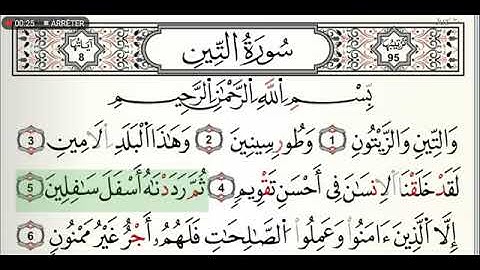 00:25 ■ ARRÊTER
آياتها 8
سُورَةُ التِّينِ
ترتيبها 95
بِسْمِ اللَّهِ الرَّحْمَٰنِ الرَّحِيمِ
وَالتِّينِ وَالزَّيْتُونِ 1 وَطُورِ سِينِينَ 2 وَهَٰذَا الْبَلَدِ الْأَمِينِ 3
لَقَدْ خَلَقْنَا الْإِنسَانَ فِي أَحْسَنِ تَقْوِيمٍ 4 ثُمَّ رَدَدْنَاهُ أَسْفَلَ سَافِلِينَ 5
إِلَّا الَّذِينَ ءَامَنُوا وَعَمِلُوا الصَّالِحَاتِ فَلَهُمْ أَجْرٌ غَيْرُ مَمْنُونٍ 6